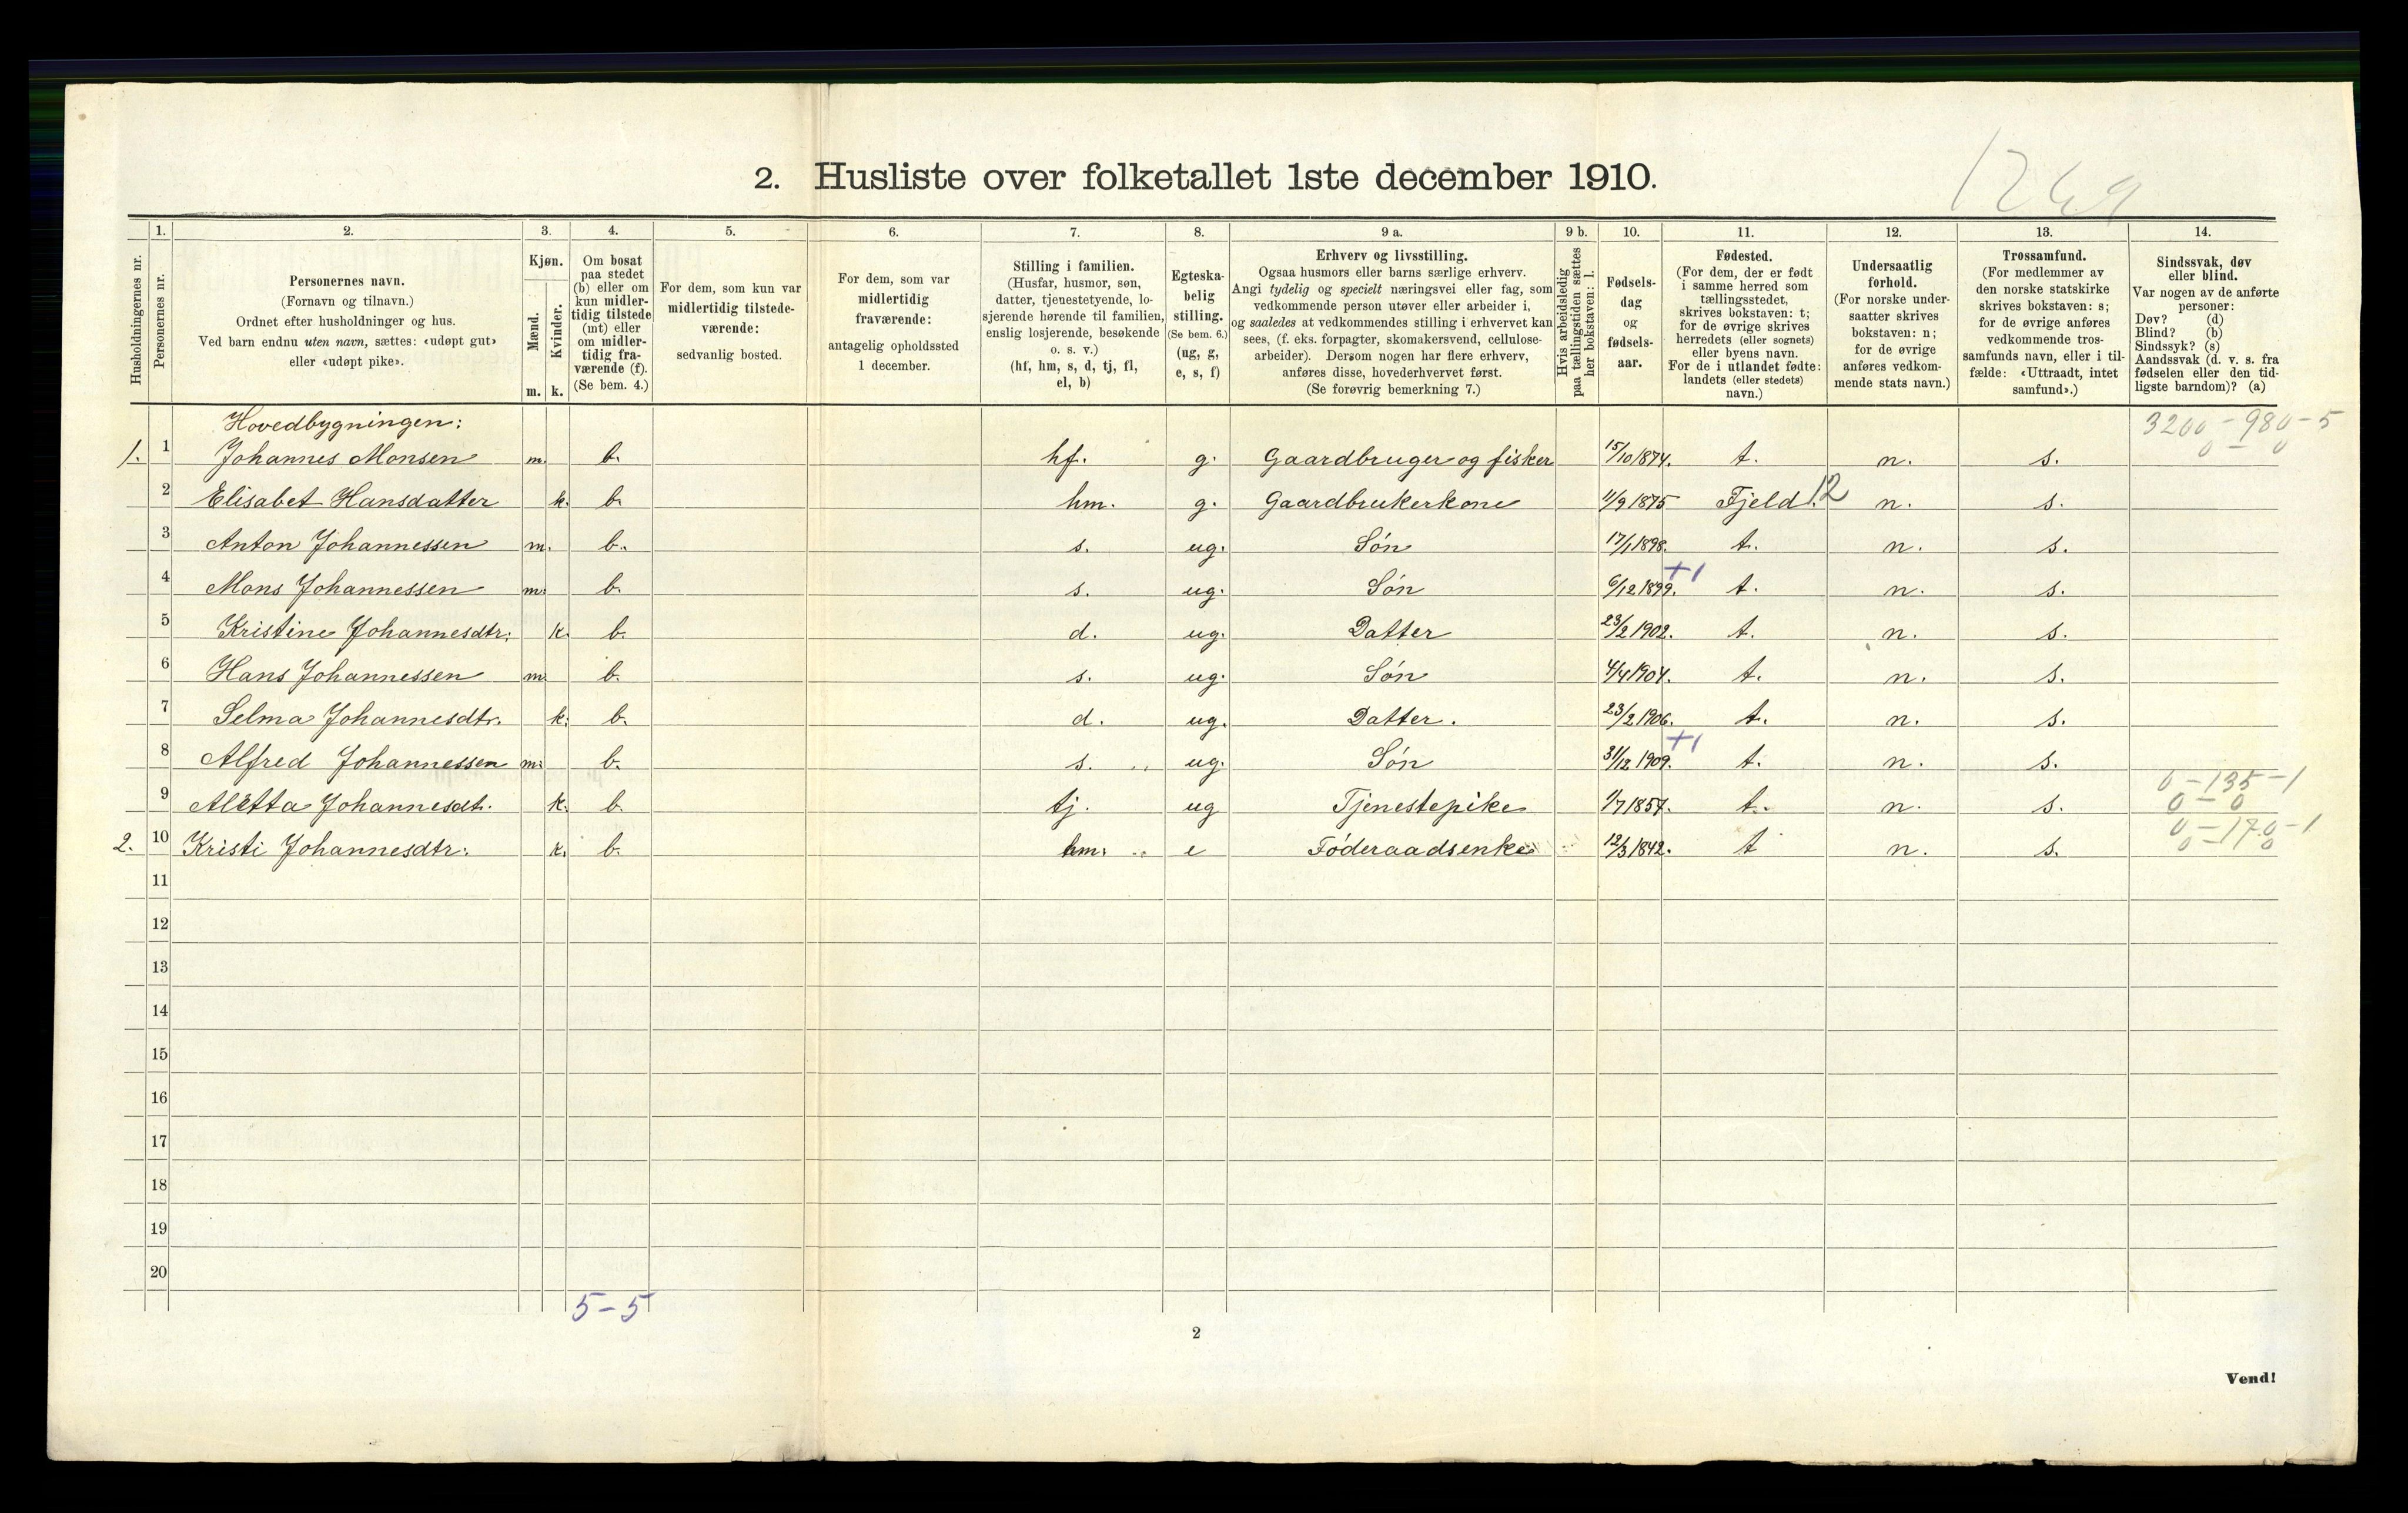 2. Husliste over folketallet 1ste december 1910.
1269
Husholdningernes nr.
1.
Personernes nr.
2.
Personernes navn.
(Fornavn og tilnavn.)
Ordnet efter husholdninger og hus.
Ved barn endnu uten navn, sættes: «udøpt gut»
eller «udøpt pike».
3.
Kjøn.
Mænd. Kvinder.
m. k.
4.
Om bosat
paa stedet
(b) eller om
kun midler-
tidig tilstede
(mt) eller
om midler-
tidig fra-
værende (f).
(Se bem. 4.)
5.
For dem, som kun var
midlertidig tilstede-
værende:
sedvanlig bosted.
6.
For dem, som var
midlertidig
fraværende:
antagelig opholdssted
1 december.
7.
Stilling i familien.
(Husfar, husmor, søn,
datter, tjenestetyende, lo-
sjerende hørende til familien,
enslig losjerende, besøkende
o. s. v.)
(hf, hm, s, d, tj, fl,
el, b)
8.
Egteska-
belig
stilling.
(Se bem. 6.)
(ug, g,
e, s, f)
9 a.
Erhverv og livsstilling.
Ogsaa husmors eller barns særlige erhverv.
Angi tydelig og specielt næringsvei eller fag, som
vedkommende person utøver eller arbeider i,
og saaledes at vedkommendes stilling i erhvervet kan
sees, (f. eks. forpagter, skomakersvend, cellulose-
arbeider). Dersom nogen har flere erhverv,
anføres disse, hovederhvervet først.
(Se forøvrig bemerkning 7.)
9 b.
Hvis arbeidsledig
paa tællingstiden sættes
her bokstaven: l.
10.
Fødsels-
dag
og
fødsels-
aar.
11.
Fødested.
(For dem, der er født
i samme herred som
tællingsstedet,
skrives bokstaven: t;
for de øvrige skrives
herredets (eller sognets)
eller byens navn.
For de i utlandet fødte:
landets (eller stedets)
navn.)
12.
Undersaatlig
forhold.
(For norske under-
saatter skrives
bokstaven: n;
for de øvrige
anføres vedkom-
mende stats navn.)
13.
Trossamfund.
(For medlemmer av
den norske statskirke
skrives bokstaven: s;
for de øvrige anføres
vedkommende tros-
samfunds navn, eller i til-
fælde: «Uttraadt, intet
samfund».)
14.
Sindssvak, døv
eller blind.
Var nogen av de anførte
personer:
Døv? (d)
Blind? (b)
Sindssyk? (s)
Aandssvak (d. v. s. fra
fødselen eller den tid-
ligste barndom)? (a)
Hovedbygningen:
3200 - 980 - 5
0 - 0
1. 1 Johannes Monsen m. b. hf. g. Gaardbruger og fisker 15/10 1874. t. n. s.
2 Elisabet Hansdatter k. b. hm. g. Gaardbrukerkone 11/9 1875 Fjeld. 12 n. s.
3 Anton Johannessen m. b. s. ug. Søn 17/1 1898. t. n. s.
+1
4 Mons Johannessen m. b. s. ug. Søn 6/12 1899. t. n. s.
5 Kristine Johannesdtr. k. b. d. ug. Datter 23/2 1902. t. n. s.
6 Hans Johannessen m. b. s. ug. Søn 4/4 1904. t. n. s.
7 Selma Johannesdtr. k. b. d. ug. Datter. 23/2 1906. t. n. s.
+1
8 Alfred Johannessen m. b. s. ug. Søn 31/12 1909. t. n. s.
0 - 135 - 1
0 - 0
9 Aletta Johannesdt. k. b. tj. ug Tjenestepike 1/7 1857. t. n. s.
0 - 170 - 1
0 - 0
2. 10 Kristi Johannesdtr. k. b. hm. e Føderaadsenke 12/3 1842. t n. s.
11
12
13
14
15
16
17
18
19
20
5 - 5
2
Vend!